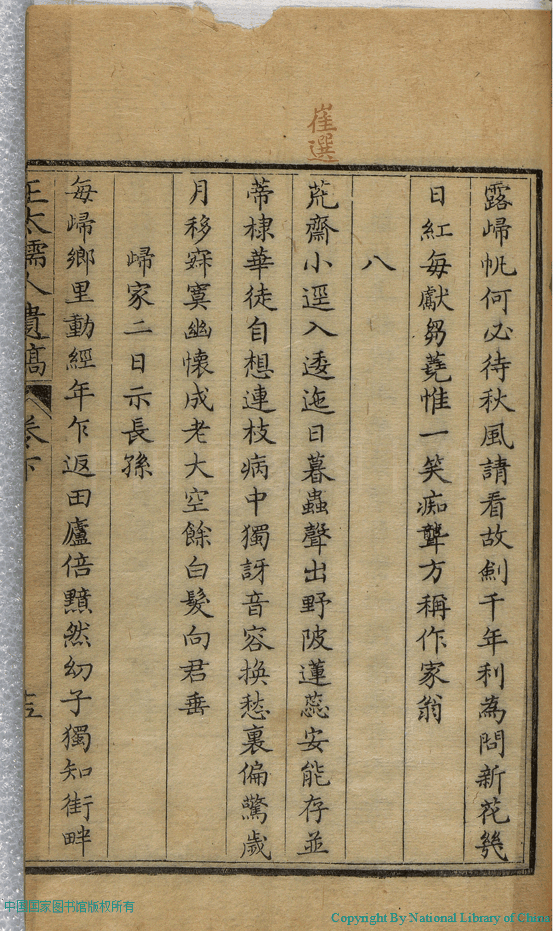 崔選
露歸帆何必待秋風請看故劍千年利為問新花幾
日紅每獻芻蕘惟一笑痴聾方稱作家翁
八
荒齋小逕入逶迤日暮蟲聲出野陂蓮蕊安能存並
蒂棣華徒自想連枝病中獨訝音容換愁裏偏驚歲
月移寂寞幽懷成老大空餘白髮向君垂
歸家二日示長孫
每歸鄉里動經年乍返田廬倍黯然幼子獨知街畔
王太孺人遺稿 卷下
中国国家图书馆版权所有
Copyright By National Library of China